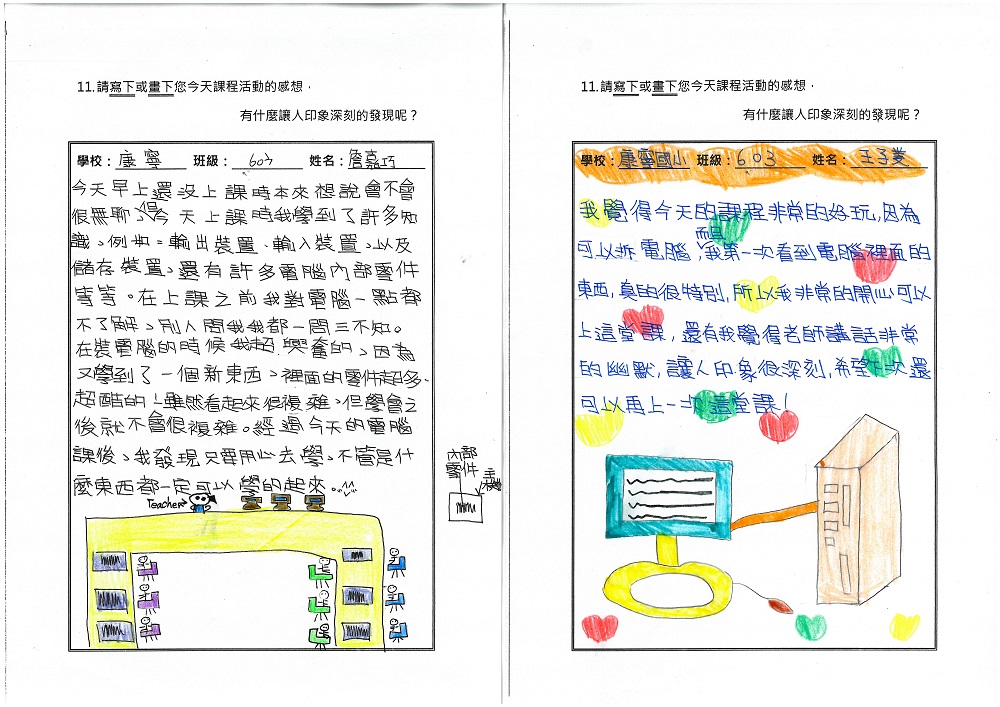 11.請寫下或畫下您今天課程活動的感想，
有什麼讓人印象深刻的發現呢？
學校：康寧 班級：603 姓名：詹嘉巧
今天早上還沒上課時本來想說會不會
很無聊，但今天上課時我學到了許多知
識。例如：輸出裝置、輸入裝置、以及
儲存裝置、還有許多電腦內部零件
等等。在上課之前我對電腦一點都
不了解、別人問我我都一問三不知。
在裝電腦的時候我超興奮的、因為
又學到了一個新東西、裡面的零件超多、
超酷的！雖然看起來很複雜。但學會之
後就不會很複雜。經過今天的電腦
課後、我發現只要用心去學、不管是什
麼東西都一定可以學的起來。^^
內部零件
主機
Teacher
11.請寫下或畫下您今天課程活動的感想，
有什麼讓人印象深刻的發現呢？
學校：康寧國小 班級：603 姓名：王子菱
我覺得今天的課程非常的好玩,因為
可以拆電腦,而且我第一次看到電腦裡面的
東西,真的很特別,所以我非常的開心可以
上這堂課,還有我覺得老師講話非常
的幽默,讓人印象很深刻,希望下次還
可以再上一次這堂課!